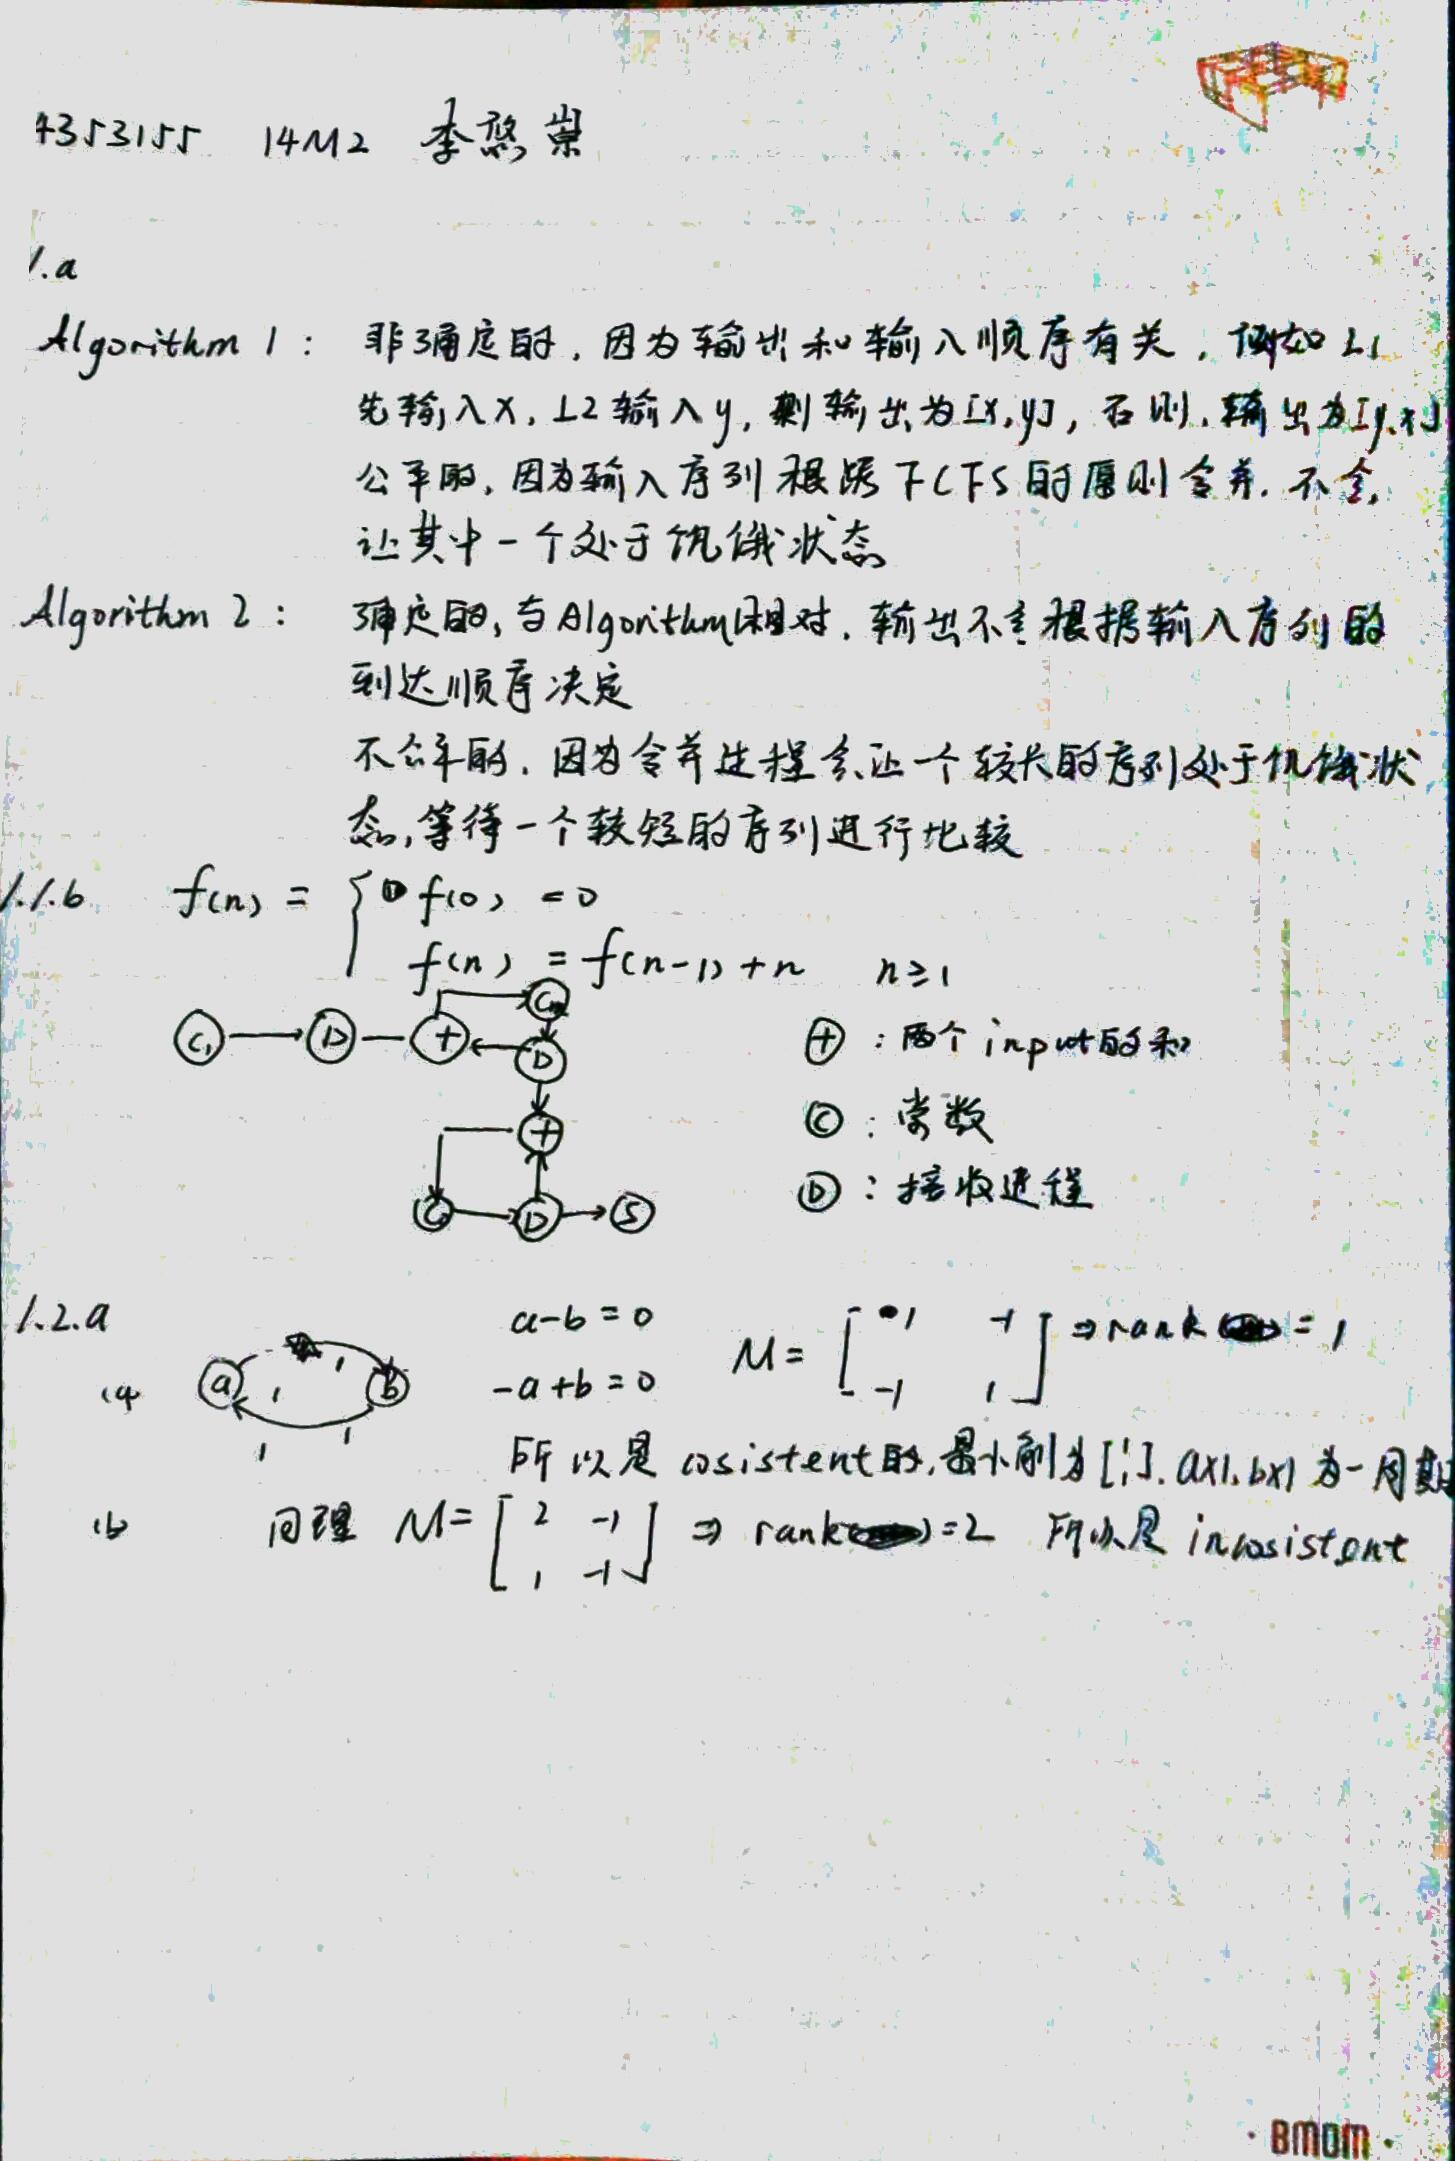 4353155 14M2 李悠崇
1.a
Algorithm 1: 非确定的, 因为输出和输入顺序有关, 例如 L1
先输入x, L2 输入y, 则输出为[x,y], 否则, 输出为[y,x]
公平的, 因为输入序列根据 FCFS 的原则合并, 不会
让其中一个处于饥饿状态
Algorithm 2: 确定的, 与Algorithm1相对, 输出不会根据输入序列的
到达顺序决定
不公平的, 因为合并进程会让一个较大的序列处于饥饿状
态, 等待一个较短的序列进行比较
1.1.b f(n) = { f(0) = 0
f(n) = f(n-1) + n n≥1
C
C1 D + D
⊕ : 两个 input 的和
+
Ⓒ : 常数
C D S
Ⓓ : 接收进程
1.2.a a-b=0 M = [ 1 -1 -1 1 ] ⇒ rank = 1
(a a b 1 1 1 1 -a+b=0
所以是 cosistent 的, 最小解为 [1 1]. a×1, b×1 为一周期
(b 同理 M = [ 2 -1 1 -1 ] ⇒ rank = 2 所以是 incosistent
BMOM